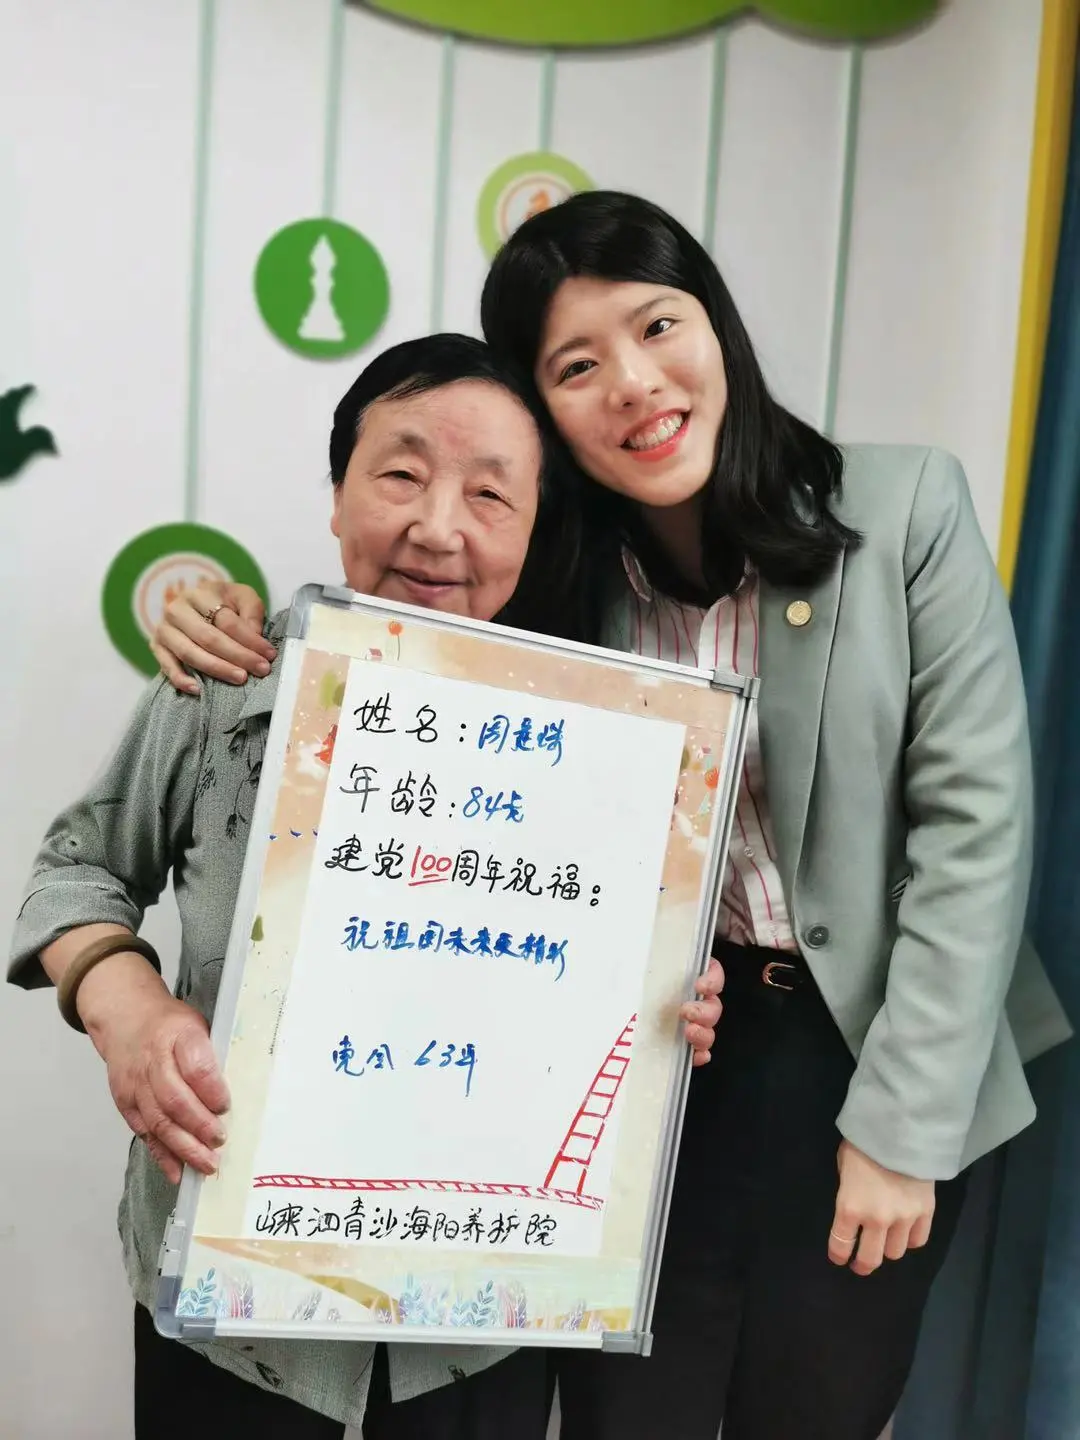 姓名：周建娣
年龄：84岁
建党100周年祝福：
祝祖国未来更精彩
党令 63年
嵊泗青沙海阳养老院